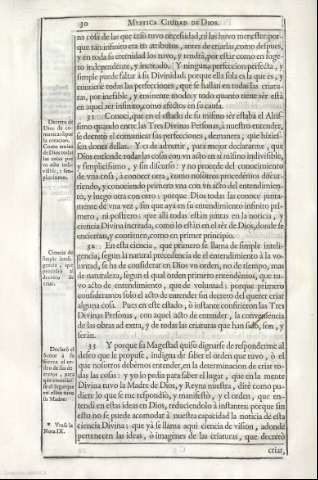 30 MYSTICA CIUDAD DE DIOS.
no cosa de las que crió tuvo necesidad, ni las huvo menester porque
tan infinito era en atributos, antes de criarlas, como despues,
y en toda su eternidad los tuvo, y tendrá, por estar como en sugeto
independente, y increado. Y ninguna perfeccion perfecta, y
simple puede faltar à su Divinidad: porque ella sola es la que es, y
contiene todas las perfecciones, que se hallan en todas las criaturas,
por inefable, y eminente modo: y todo quanto tiene sér está
en aquel sér infinito, como efectos en su causa.
31 Conocí, que en el estado de su mismo sér estaba el Altissimo
quando entre las Tres Divinas Personas, à nuestro entender,
se decretó el comunicar sus perfecciones, de manera, que hiciessen
dones dellas. Y es de advertir, para mejor declararme, que
Dios entiende todas las cosas con un acto en sí mismo indivisible,
y simplicissimo, y sin discurso: y no procede del conocimiento
de una cosa, à conocer otra, como nosotros procedemos discurriendo,
y conociendo primero una con un acto del entendimiento,
y luego otra con otro: porque Dios todas las conoce juntamente
de una vez, sin que aya en su entendimiento infinito primero,
ni postrero: que alli todas están juntas en la noticia, y
ciencia Divina increada, como lo están en el sér de Dios, donde se
encierran, y contienen, como en primer principio.
Decreto de
Dios de comunicarse
por
la creacion.
Como entiende
Dios todas
las cosas por
un acto indivisible,
y simplicissimo.
32 En esta ciencia, que primero se llama de simple inteligencia,
segun la natural precedencia de el entendimiento à la voluntad,
se ha de considerar en Dios un orden, no de tiempo, mas
de naturaleza, segun el qual orden primero entendemos, que tuvo
acto de entendimiento, que de voluntad: porque primero
consideramos solo el acto de entender sin decreto del querer criar
alguna cosa. Pues en este estado, ò instante confirieron las Tres
Divinas Personas, con aquel acto de entender, la convesencia
de las obras ad extra, y de todas las criaturas que han sido, son, y
serán.
Ciencia de
simple inteligencia,
que
precedió al
decreto de
criar.
33 Y porque su Magestad quiso dignarse de responderme al
deseo que le propuse, indigna de saber el orden que tuvo, ò el
que nosotros debemos entender, en la determinacion de criar todas
las cosas: y yo lo pedía para saber el lugar, que en la mente
Divina tuvo la Madre de Dios, y Reyna nuestra, diré como pudiere
lo que se me respondió, y manifestó, y el orden, que entendí
en estas ideas en Dios, reduciendolo à instantes: porque sin
esto no se puede acomodar à nuestra capacidad la noticia de esta
ciencia Divina: que yá se llama aqui ciencia de vision, adonde
pertenecen las ideas, ò imagenes de las criaturas, que decretó
criar,
* Vease la
Nota IX.